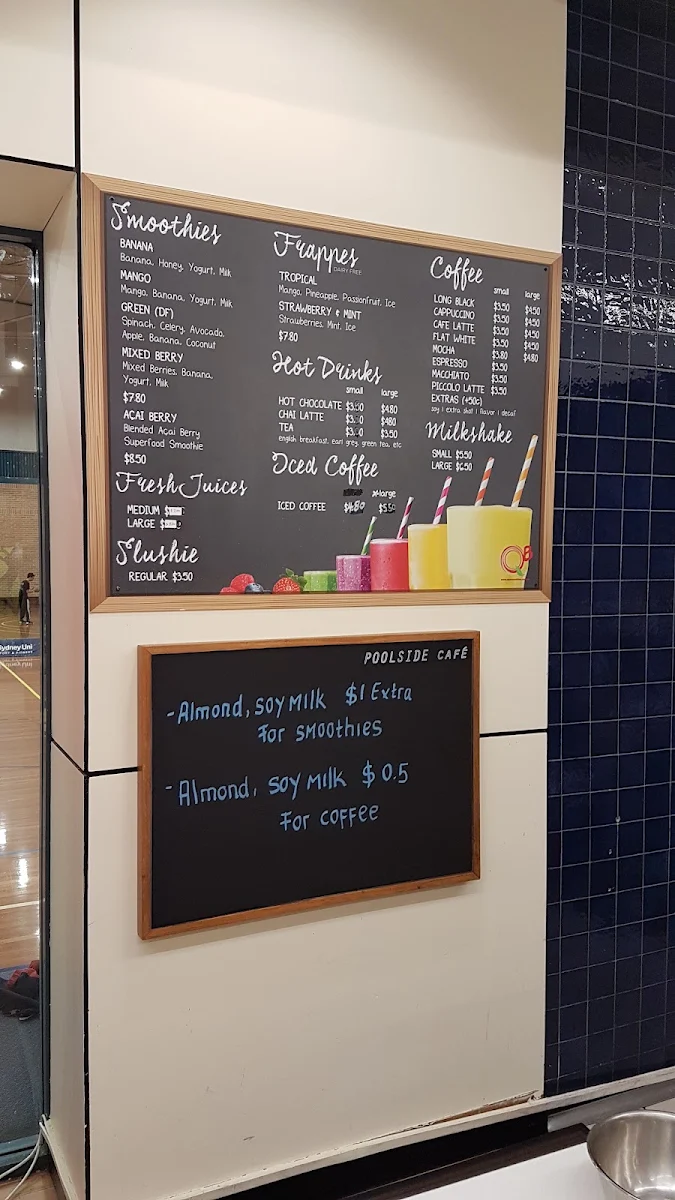 Smoothies
BANANA
Banana, Honey, Yogurt, Milk
MANGO
Mango, Banana, Yogurt, Milk
GREEN (DF)
Spinach, Celery, Avocado,
Apple, Banana, Coconut
MIXED BERRY
Mixed Berries, Banana,
Yogurt, Milk
$7.80
ACAI BERRY
Blended Acai Berry
Superfood Smoothie
$8.50
Fresh Juices
MEDIUM $
LARGE $
Slushie
REGULAR $3.50
Frappes
DAIRY FREE
TROPICAL
Mango, Pineapple, Passionfruit, Ice
STRAWBERRY & MINT
Strawberries, Mint, Ice
$7.80
Hot Drinks
small large
HOT CHOCOLATE $3.50 $4.80
CHAI LATTE $4.80
TEA $3.50
english breakfast, earl grey, green tea, etc
Iced Coffee
x-large
ICED COFFEE $4.80 $5.50
Coffee
small large
LONG BLACK $3.50 $4.50
CAPPUCCINO $3.50 $4.50
CAFE LATTE $3.50 $4.50
FLAT WHITE $3.50 $4.50
MOCHA $3.80 $4.80
ESPRESSO $3.50
MACCHIATO $3.50
PICCOLO LATTE $3.50
EXTRAS (+50c)
soy | extra shot | flavor | decaf
Milkshake
SMALL $5.50
LARGE $6.50
POOLSIDE CAFÉ
- Almond, soy milk $1 Extra
For smoothies
- Almond, soy milk $0.5
For coffee
Sydney Uni